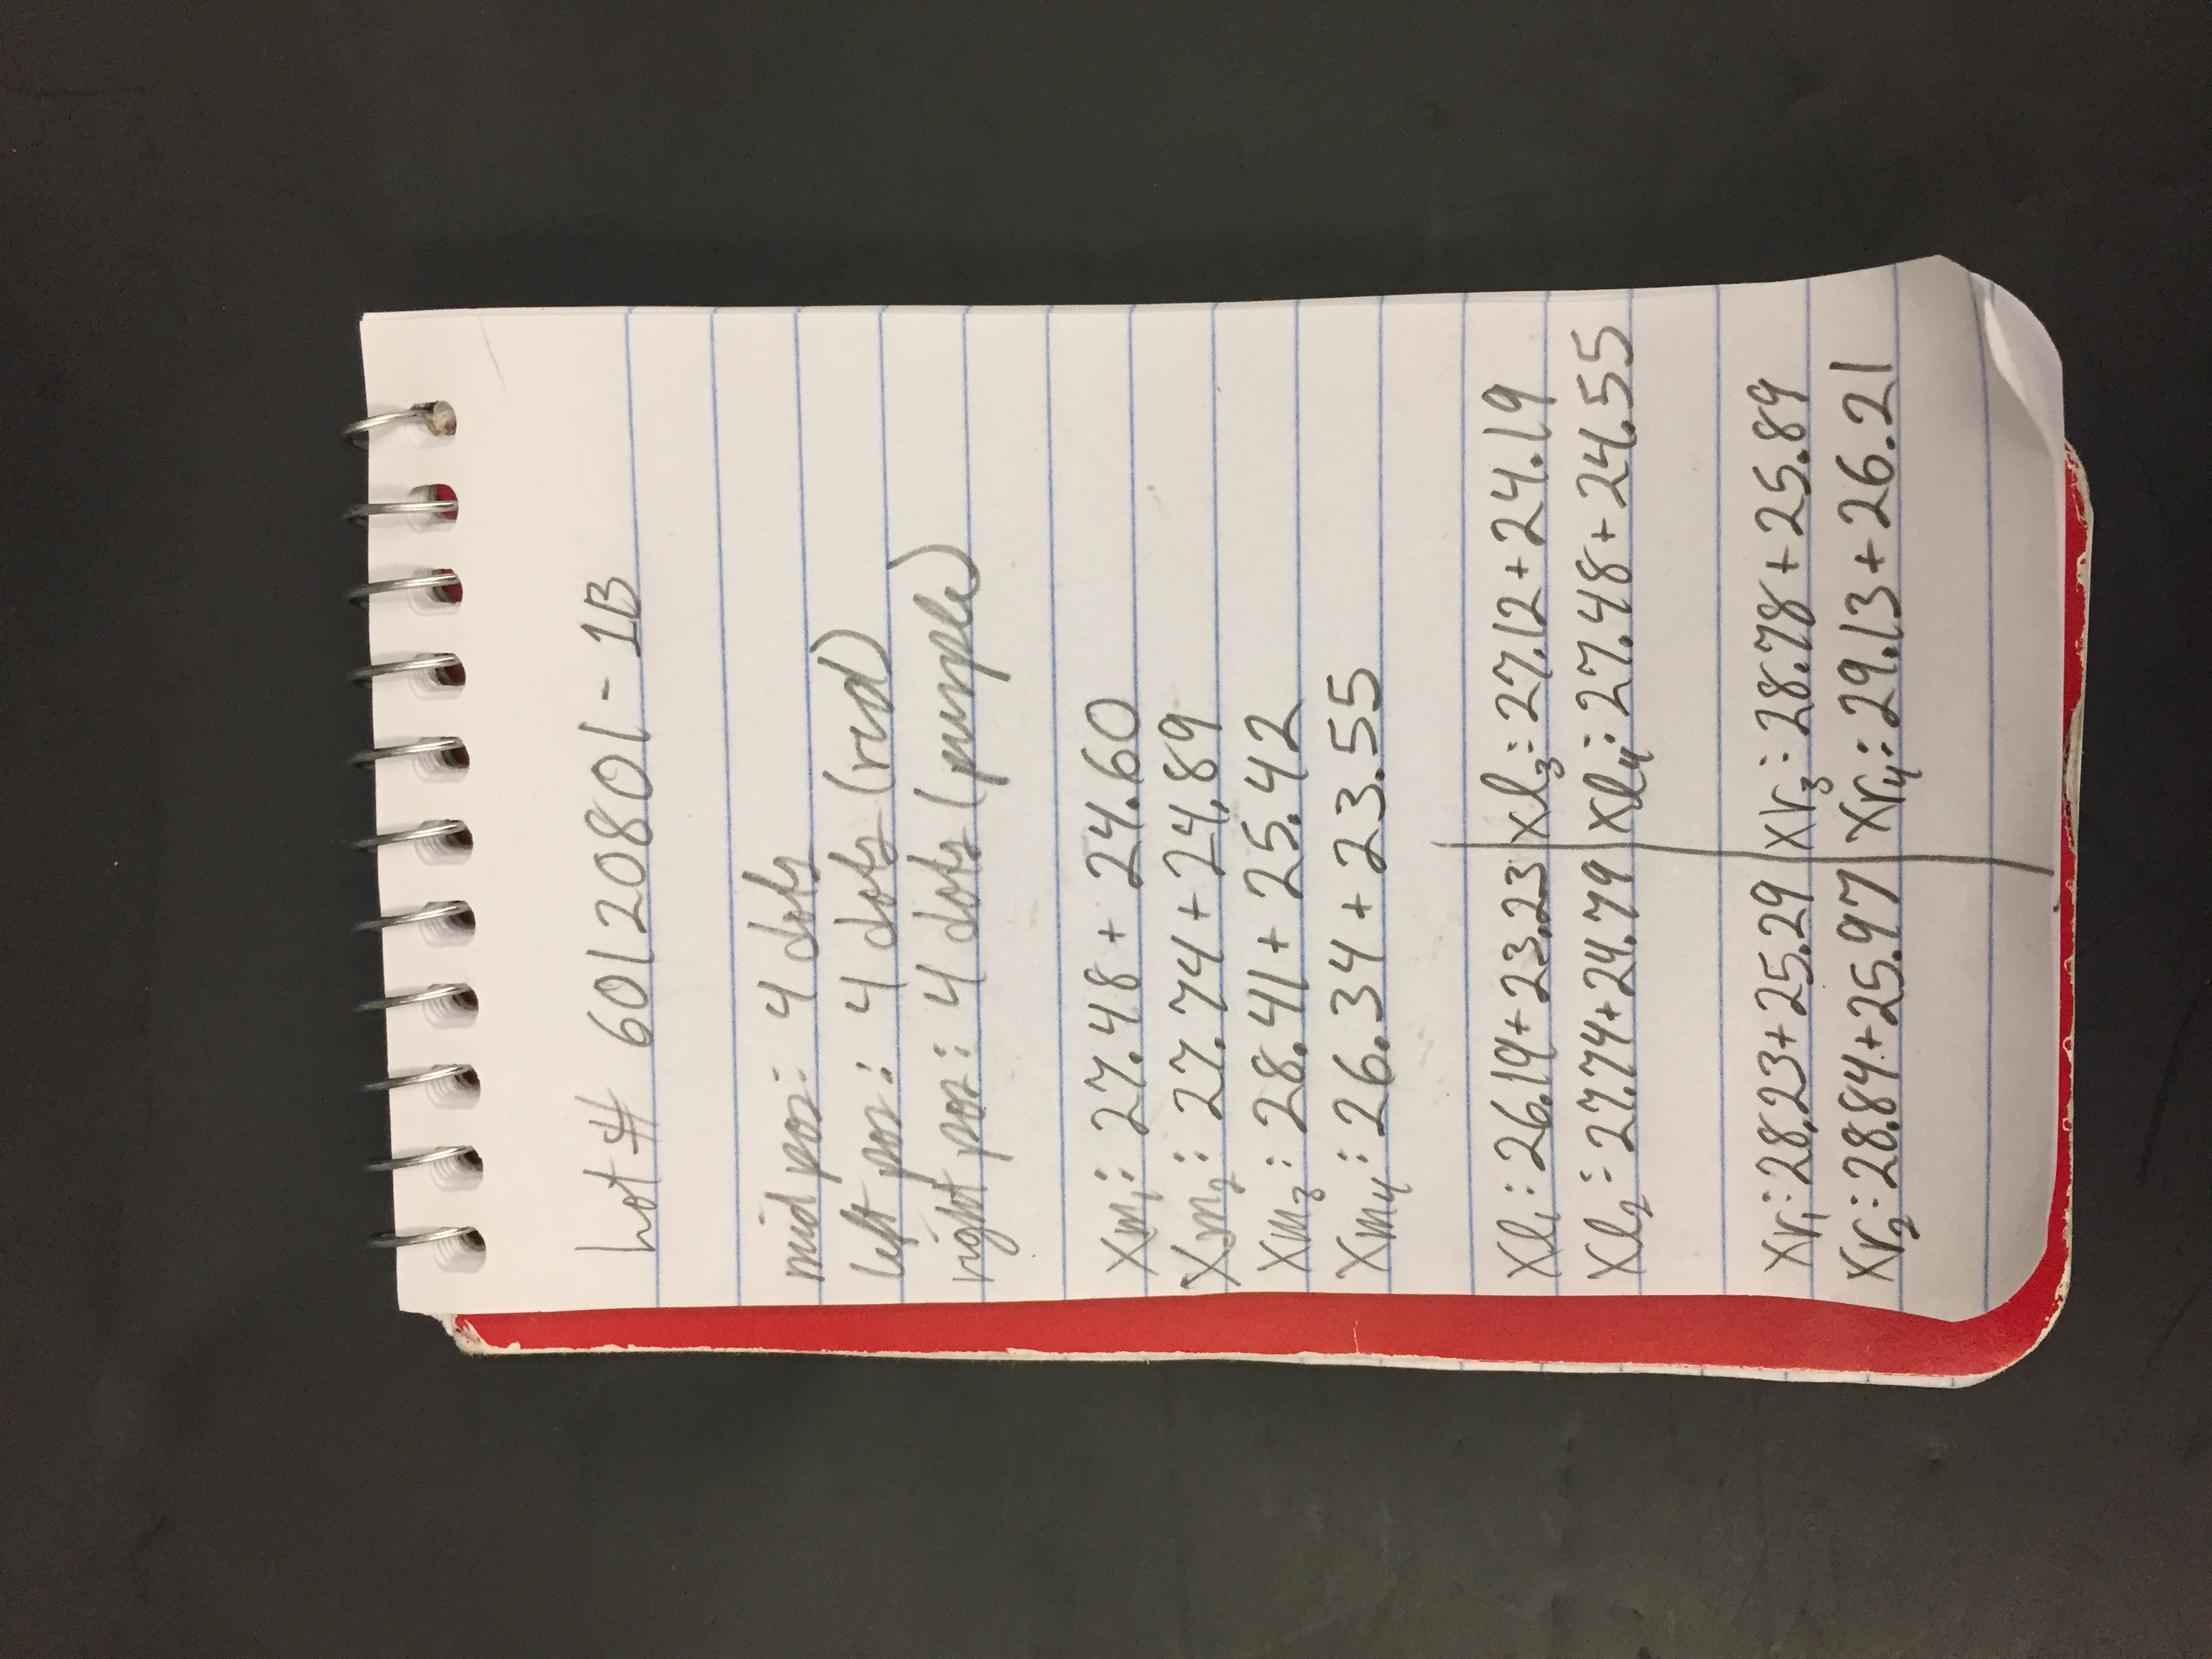 Lot # 60120801-1B
mid pos: 4 dots
left pos: 4 dots (red)
right pos: 4 dots (purple)
Xm₁: 27.48 + 24.60
Xm₂: 27.74 + 24.89
Xm₃: 28.41 + 25.42
Xm₄: 26.34 + 23.55
Xl₁: 26.19 + 23.23
Xl₂: 27.74 + 24.79
Xl₃: 27.12 + 24.19
Xl₄: 27.48 + 24.55
Xr₁: 28.23 + 25.29
Xr₂: 28.84 + 25.97
Xr₃: 28.78 + 25.89
Xr₄: 29.13 + 26.21